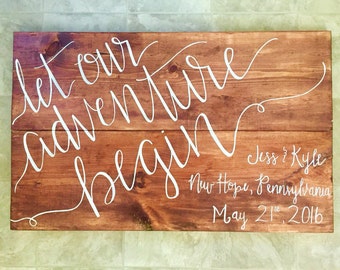 let our
adventure
begin
Jess & Kyle
New Hope, Pennsylvania
May 21st, 2016